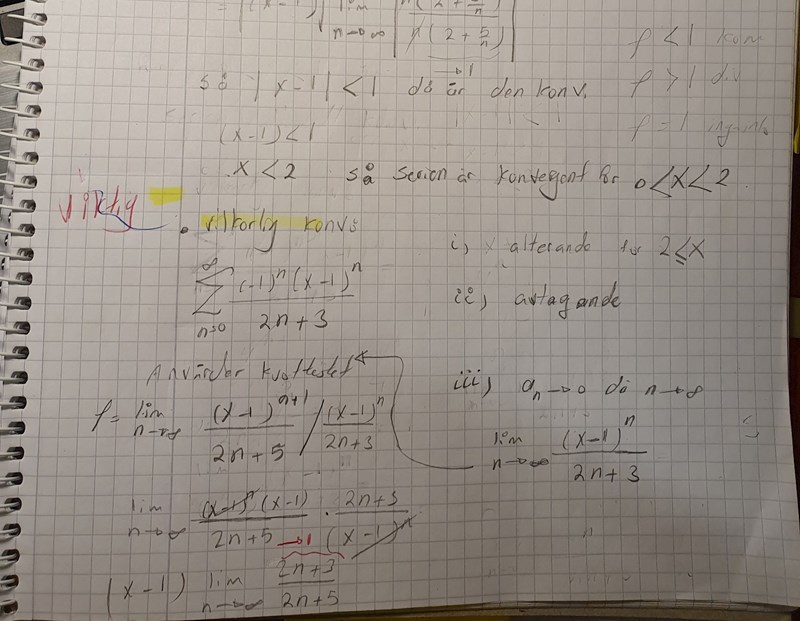 = |(x-1)| lim n→∞ | n(2+3/n) / n(2+5/n) | →1
ρ < 1 konv
så |x-1| < 1 då är den konv.
ρ > 1 div
(x-1) < 1
ρ = 1
x < 2 så serien är konvergent för 0 < x < 2
viktig
• vilkorlig konv:
i) x alterande för 2 ≤ x
∞ Σ n=0 (-1)^n (x-1)^n / 2n+3
ii) avtagande
Använder kvottestet
iii) a_n → 0 då n → ∞
ρ = lim n→∞ (x-1)^{n+1} / 2n+5 / (x-1)^n / 2n+3
lim n→∞ (x-1)^n / 2n+3
lim n→∞ (x-1)^n (x-1) / 2n+5 · 2n+3 / (x-1)^n
→1
(x-1) lim n→∞ 2n+3 / 2n+5